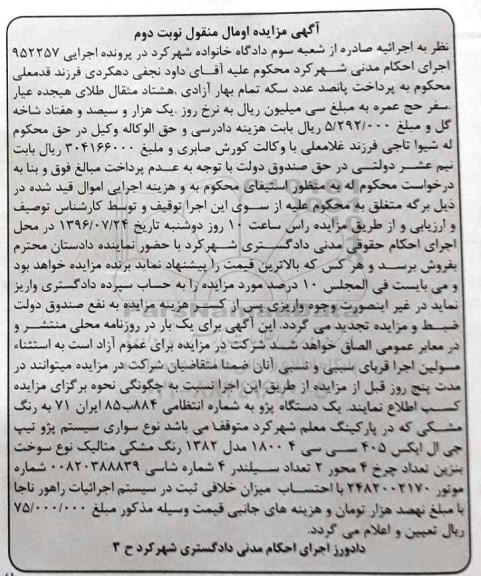 آگهی مزایده اومال منقول نوبت دوم
نظر به اجرائیه صادره از شعبه سوم دادگاه خانواده شهرکرد در پرونده اجرایی ۹۵۲۲۵۷
اجرای احکام مدنی شهرکرد محکوم علیه آقای داود نجفی دهکردی فرزند قدمعلی
محکوم به پرداخت پانصد عدد سکه تمام بهار آزادی .هشتاد مثقال طلای هیجده عیار
.سفر حج عمره به مبلغ سی میلیون ریال به نرخ روز .یک هزار و سیصد و هفتاد شاخه
گل و مبلغ ۵/۲۹۲/۰۰۰ ریال بابت هزینه دادرسی و حق الوکاله وکیل در حق محکوم
له شیوا تاجی فرزند غلامعلی با وکالت کورش صابری و ملبغ ۳۰۴۱۶۶۰۰۰ ریال بابت
نیم عشر دولتی در حق صندوق دولت با توجه به عدم پرداخت مبالغ فوق و بنا به
درخواست محکوم له به منظور استیفای محکوم به و هزینه اجرایی اموال قید شده در
ذیل برگه متعلق به محکوم علیه از سوی این اجرا توقیف و توسط کارشناس توصیف
و ارزیابی و از طریق مزایده راس ساعت ۱۰ روز دوشنبه تاریخ ۱۳۹۶/۰۷/۲۴ در محل
اجرای احکام حقوقی مدنی دادگستری شهرکرد با حضور نماینده دادستان محترم
بفروش برسد و هر کس که بالاترین قیمت را پیشنهاد نماید برنده مزایده خواهد بود
و می بایست فی المجلس ۱۰ درصد مورد مزایده را به حساب سپرده دادگستری واریز
نماید در غیر اینصورت وجوه واریزی پس از کسر هزینه مزایده به نفع صندوق دولت
ضبط و مزایده تجدید می گردد. این آگهی برای یک بار در روزنامه محلی منتشر و
در معابر عمومی الصاق خواهد شد شرکت در مزایده برای عموم آزاد است به استثناء
مسولین اجرا قربای سببی و نسبی آنان ضمنا متقاضیان شرکت در مزایده میتوانند در
مدت پنج روز قبل از مزایده از طریق این اجرا نسبت به چگونگی نحوه برگزای مزایده
کسب اطلاع نمایند. یک دستگاه پژو به شماره انتظامی ۸۸۴ب۸۵ ایران ۷۱ به رنگ
مشکی که در پارکینگ معلم شهرکرد متوقف می باشد نوع سواری سیستم پژو تیپ
جی ال ایکس ۴۰۵ سی سی ۱۸۰۰ ۴ مدل ۱۳۸۲ رنگ مشکی متالیک نوع سوخت
بنزین تعداد چرخ ۴ محور ۲ تعداد سیلندر ۴ شماره شاسی ۰۰۸۲۰۳۸۸۸۳۹ شماره
موتور ۲۴۸۲۰۰۲۱۷۰ با احتساب میزان خلافی ثبت در سیستم اجرائیات راهور ناجا
با مبلغ نهصد هزار تومان و هزینه های جانبی قیمت وسیله مذکور مبلغ ۷۵/۰۰۰/۰۰۰
ریال تعیین و اعلام می گردد.
دادورز اجرای احکام مدنی دادگستری شهرکرد ح ۳